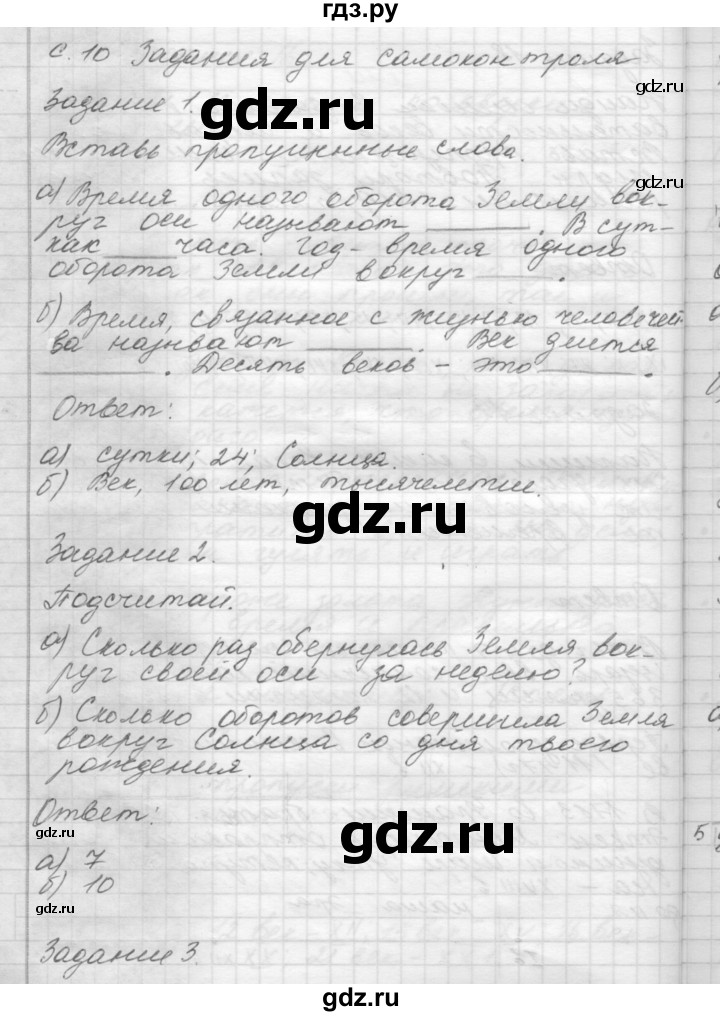 гдз.ру
с. 10 Задания для самоконтроля
gdz.ru
Задание 1.
gdz.ru
Вставь пропущенные слова.
а) Время одного оборота Земли вок-
руг оси называют ________. В сут-
gdz.ru
ках ______ часа. Год - время одного
оборота Земли вокруг ______.
б) Время, связанное с жизнью человечест
ва называют ________. Век делится
________. Десять веков - это ________.
Ответ:
а) сутки; 24; Солнца.
gdz.ru
б) Век, 100 лет, тысячелетие.
gdz.ru
Задание 2.
Подсчитай.
gdz.ru
а) Сколько раз обернулась Земля вок-
руг своей оси за неделю?
б) Сколько оборотов совершила Земля
вокруг Солнца со дня твоего
рождения.
Ответ:
gdz.ru
gdz.ru
а) 7
б) 10
gdz.ru
Задание 3.
gdz.ru
gdz.ru